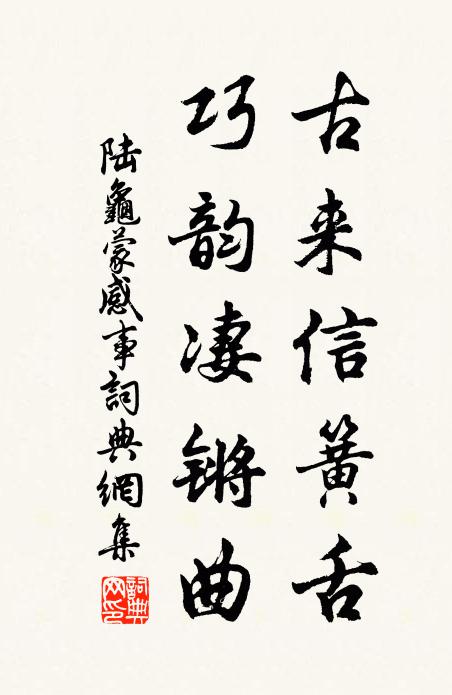 古来信簧舌
巧韵凄锵曲
陆龜蒙感事詞典網集
詞典網印